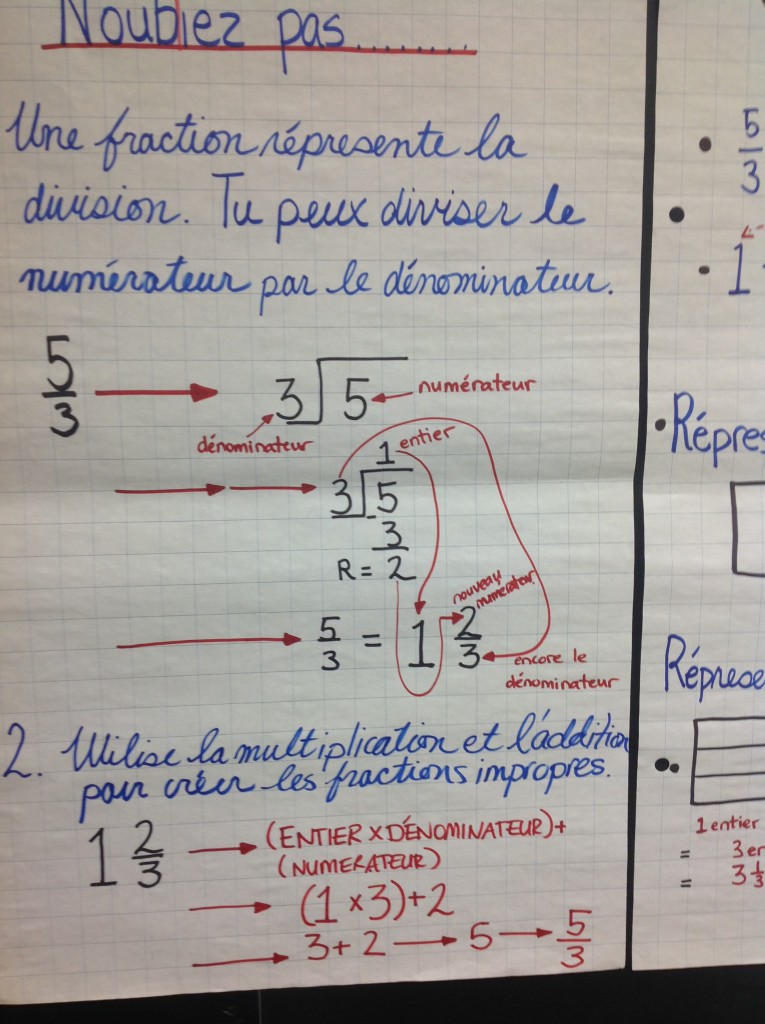 Noubliez pas........
Une fraction répresente la
division. Tu peux diviser le
numérateur par le dénominateur.
5/3 → 3⟌5 ← numérateur
dénominateur
1 entier
3⟌5
-3
R = 2
nouveau
numerateur
5/3 = 1 2/3
encore le
dénominateur
2. Utilise la multiplication et l'addition
pour créer les fractions impropres.
1 2/3 → (ENTIER X DÉNOMINATEUR)+
(NUMERATEUR)
→ (1 x 3)+2
→ 3+2 → 5 → 5/3
• 5/3
•
• 1
• Répres
Réprese
••
1 entier
= 3 en
= 3 1/3